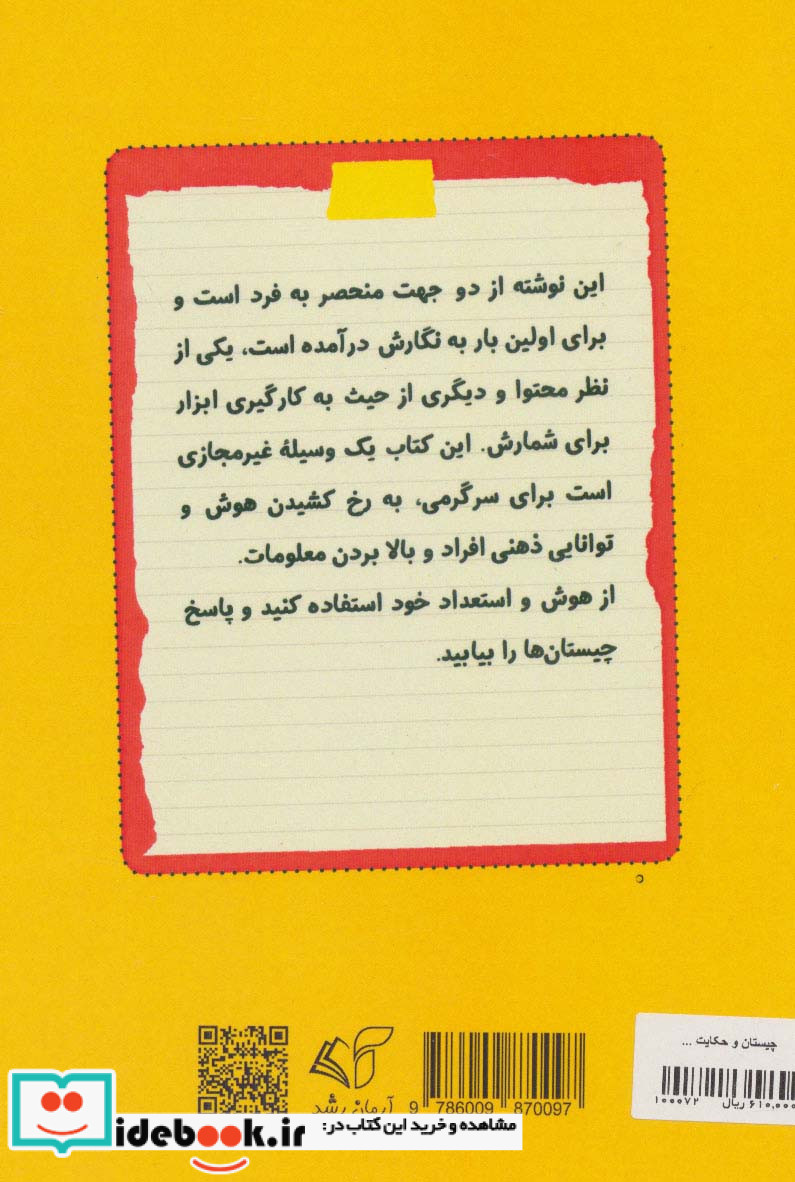 این نوشته از دو جهت منحصر به فرد است و
برای اولین بار به نگارش درآمده است، یکی از
نظر محتوا و دیگری از حیث به کارگیری ابزار
برای شمارش. این کتاب یک وسیلۀ غیرمجازی
است برای سرگرمی، به رخ کشیدن هوش و
توانایی ذهنی افراد و بالا بردن معلومات.
از هوش و استعداد خود استفاده کنید و پاسخ
چیستان‌ها را بیابید.
چیستان و حکایت ...
۱۰۰۰۷۲ ۶۱۰,۰۰۰ ریال
آرمان رشد
9 786009 870097
مشاهده و خرید این کتاب در:
idebook.ir